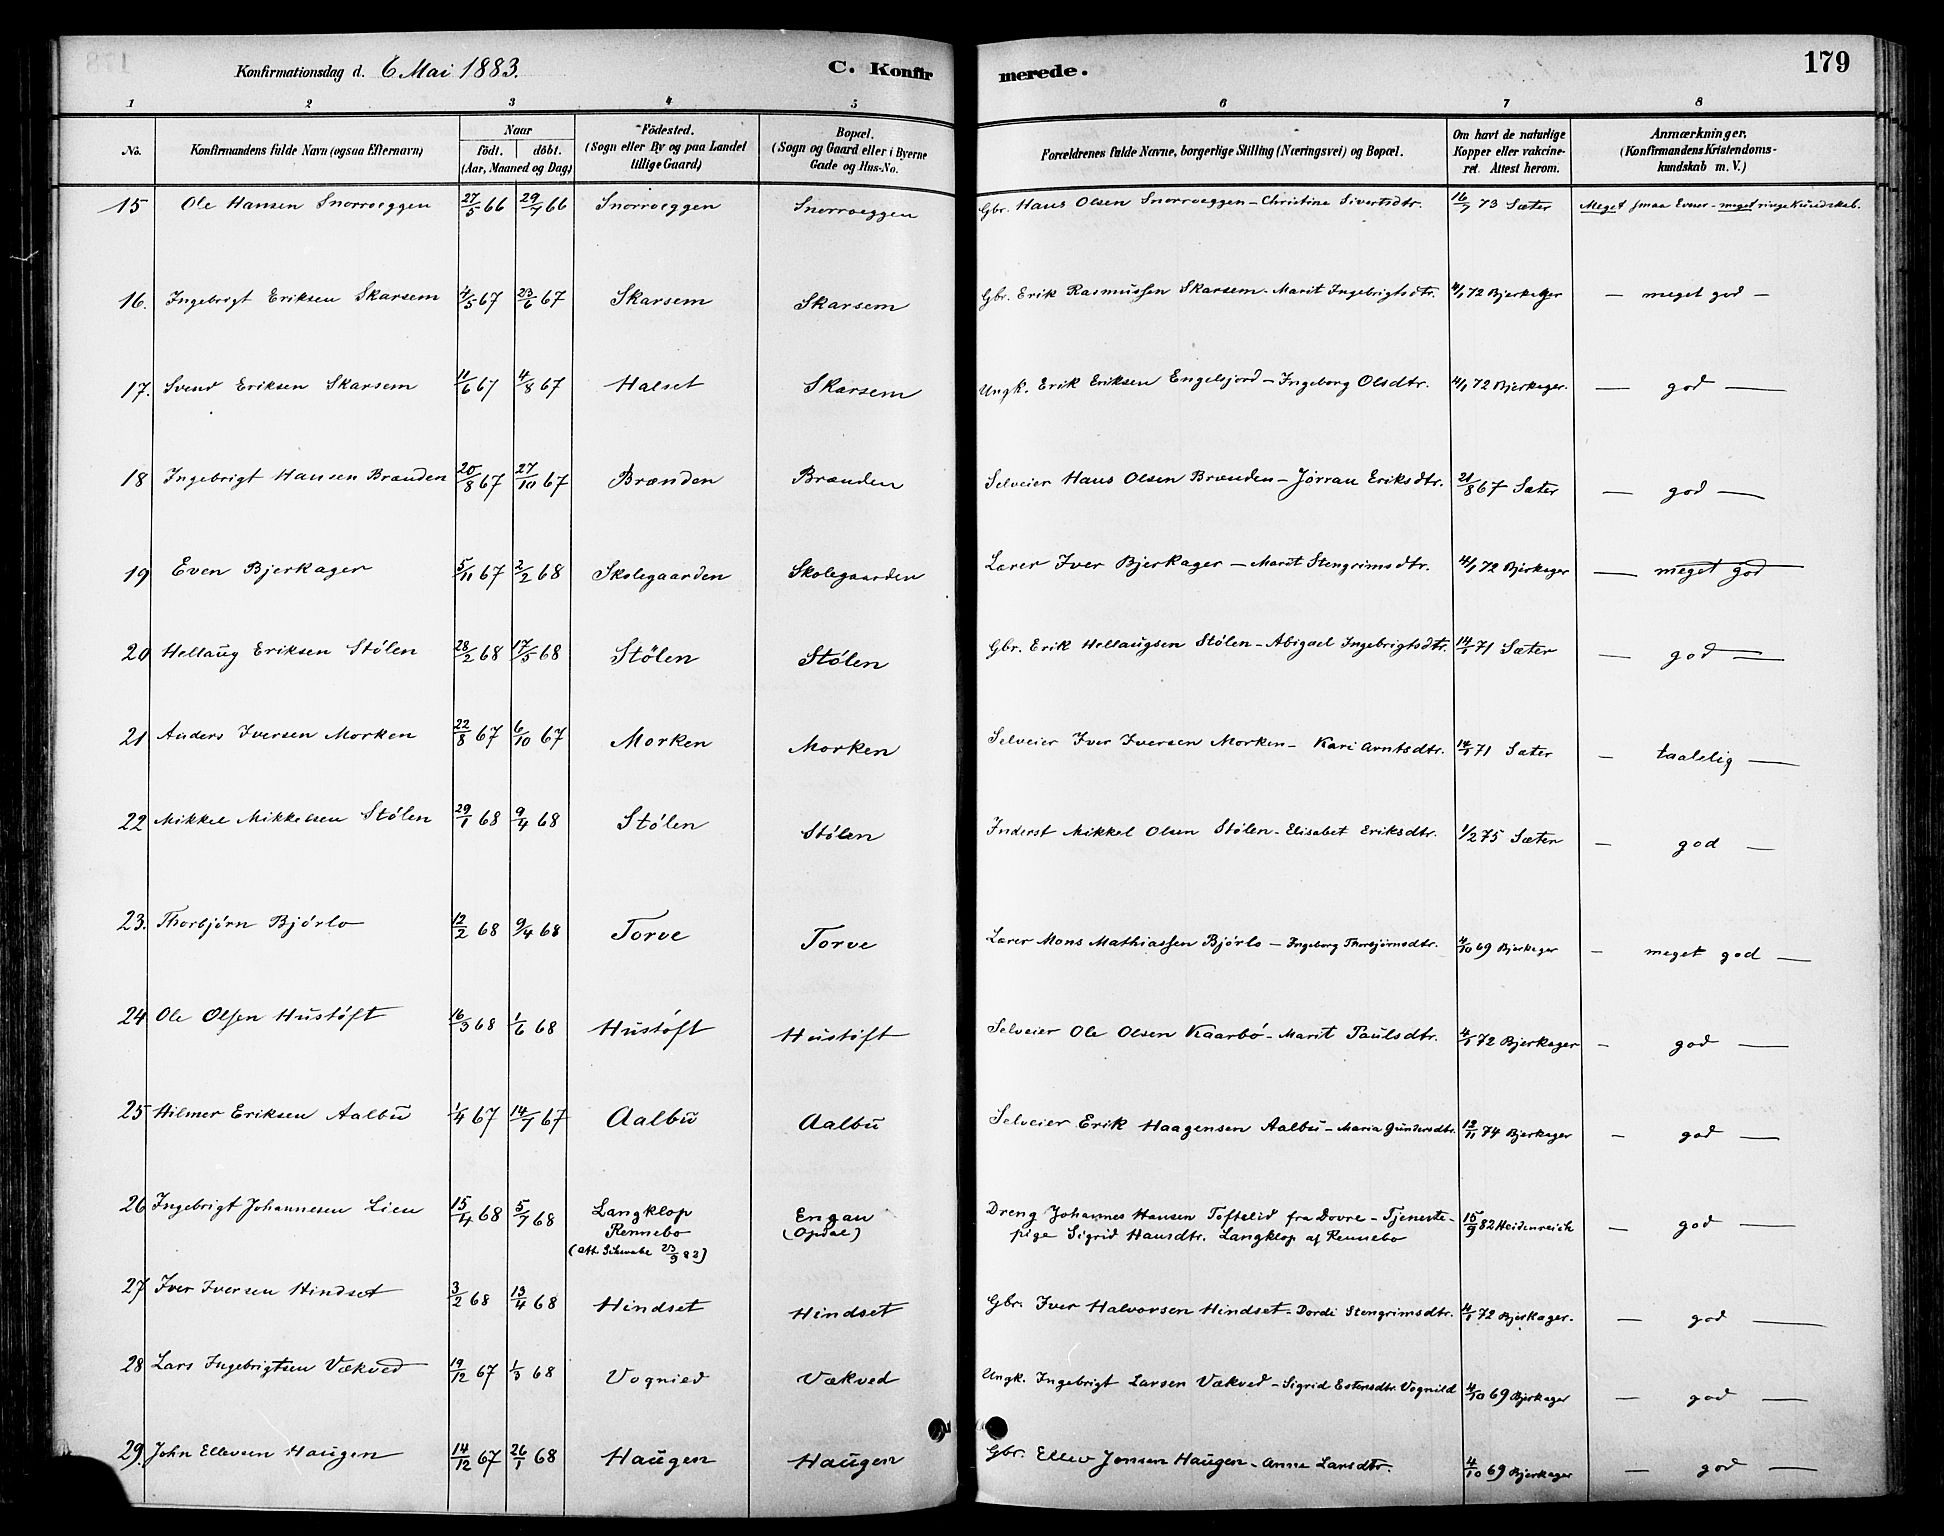 Konfirmationsdag d. 6 Mai 1883. C. Konfir merede. 179
1 2 3 4 5 6 7 8
No. Konfirmandens fulde Navn (ogsaa Efternavn) Naar födt. döbt. (Aar, Maaned og Dag) Födested. (Sogn eller By og paa Landet tillige Gaard) Bopæl. (Sogn og Gaard eller i Byerne Gade og Hus-No. Forældrenes fulde Navne, borgerlige Stilling (Næringsvei) og Bopæl. Om havt de naturlige Kopper eller vakcineret. Attest herom. Anmærkninger. (Konfirmandens Kristendomskundskab m. V.)
15 Ole Hansen Snorroeggen 27/5 66 29/7 66 Snorroeggen Snorroeggen Gbr. Hans Olsen Snorroeggen - Christine Sivertsdtr. 16/7 73 Sæter Meget smaa Evner - meget ringe Kundskab.
16. Ingebrigt Eriksen Skarsem 4/5 67 23/6 67 Skarsem Skarsem Gbr. Erik Rasmussen Skarsem - Marit Ingebrigtsdtr. 4/1 72 Bjerkager — meget god —
17. Svend Eriksen Skarsem 11/6 67 4/8 67 Halset Skarsem Ungk. Erik Eriksen Engelsjord - Ingeborg Olsdtr. 4/1 72 Bjerkager. — god —
18 Ingebrigt Hansen Brænden 20/8 67 27/10 67 Brænden Brænden Selveier Hans Olsen Brænden - Jorran Eriksdtr. 21/8 67 Sæter — god —
19 Even Bjerkager 5/11 67 2/2 68 Skolegaarden Skolegaarden Lærer Iver Bjerkager - Marit Stengrimsdtr. 4/1 72 Bjerkager — meget god
20 Hellaug Eriksen Stølen 28/2 68 17/5 68 Stølen Stølen Gbr. Erik Hellaugsen Stølen - Abigael Ingebrigtsdtr. 14/1 71 Sæter — god —
21 Anders Iversen Morken 22/8 67 6/10 67 Morken Morken Selveier Iver Iversen Morken - Kari Arntsdtr. 14/1 71 Sæter — taalelig —
22 Mikkel Mikkelsen Stølen 29/1 68 9/4 68 Stølen Stølen Inderst Mikkel Olsen Stølen - Elisabet Eriksdtr. 1/2 75 Sæter — god —
23. Thorbjørn Bjørlo 12/2 68 9/4 68 Torve Torve Lærer Mons Mathiassen Bjørlo - Ingeborg Thorbjørnsdtr. 4/10 69 Bjerkager — meget god —
24 Ole Olsen Hustøft 16/3 68 1/6 68 Hustøft Hustøft Selveier Ole Olsen Kaarbø - Marit Paulsdtr. 4/1 72 Bjerkager — god —
25 Hilmer Eriksen Aalbu 1/4 67 14/7 67 Aalbu Aalbu Selveier Erik Haagensen Aalbu - Maria Gundersdtr. 12/11 74 Bjerkager — god —
26 Ingebrigt Johannesen Lien 15/4 68 5/7 68 Langklop Rennebo (Att. Schwabe 23/9 82) Engan (Opdal) Dreng Johannes Hansen Toftelid fra Dovre - Tjenestepige Sigrid Hansdtr. Langklop af Rennebo 15/9 82 Heidenreich — god —
27 Iver Iversen Hindset 3/2 68 13/4 68 Hindset Hindset Gbr. Iver Halvorsen Hindset - Dordi Stengrimsdtr. 4/1 72 Bjerkager. — god —
28 Lars Ingebrigtsen Vækved 19/12 67 1/3 68 Vognild Vækved Ungk. Ingebrigt Larsen Vækved - Sigrid Estensdtr. Vognild 4/10 69 Bjerkager — god —
29. John Ellevsen Haugen 14/12 67 26/1 68 Haugen Haugen Gbr. Ellev Jonsen Haugen - Anne Larsdtr. 4/10 69 Bjerkager — god —